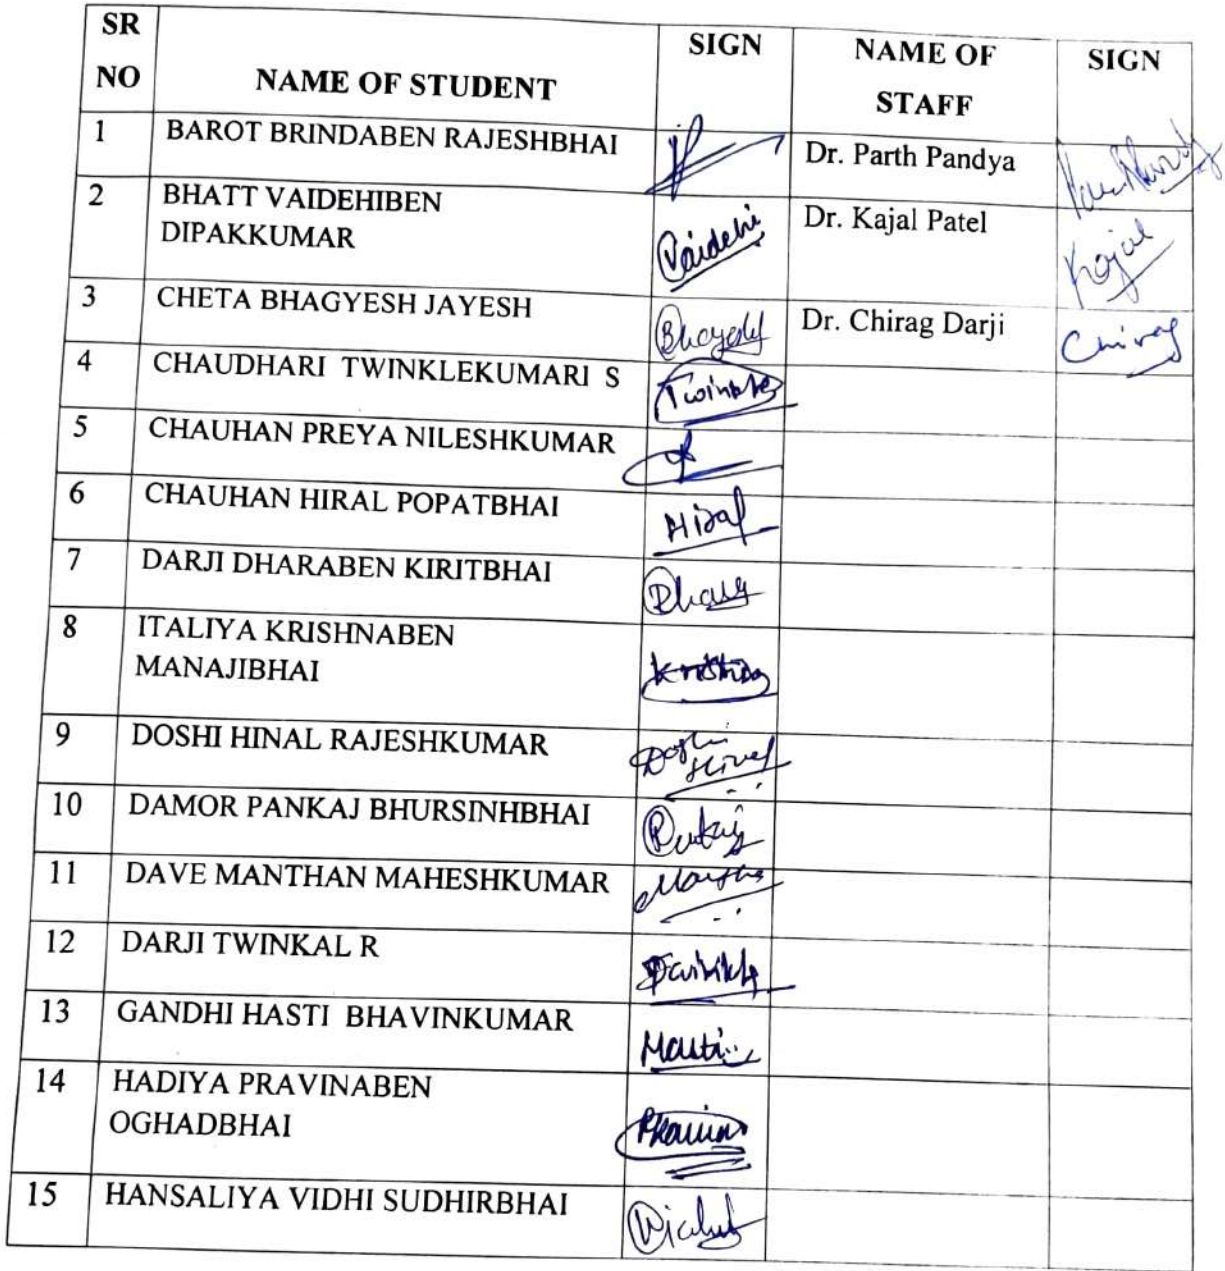 SR NO NAME OF STUDENT SIGN NAME OF STAFF SIGN
1 BAROT BRINDABEN RAJESHBHAI Dr. Parth Pandya
2 BHATT VAIDEHIBEN DIPAKKUMAR Vaidehi Dr. Kajal Patel Kajal
3 CHETA BHAGYESH JAYESH Dr. Chirag Darji Chirag
4 CHAUDHARI TWINKLEKUMARI S Twinkle
5 CHAUHAN PREYA NILESHKUMAR
6 CHAUHAN HIRAL POPATBHAI Hiral
7 DARJI DHARABEN KIRITBHAI
8 ITALIYA KRISHNABEN MANAJIBHAI Krishna
9 DOSHI HINAL RAJESHKUMAR Doshi Hinal
10 DAMOR PANKAJ BHURSINHBHAI
11 DAVE MANTHAN MAHESHKUMAR
12 DARJI TWINKAL R
13 GANDHI HASTI BHAVINKUMAR
14 HADIYA PRAVINABEN OGHADBHAI
15 HANSALIYA VIDHI SUDHIRBHAI